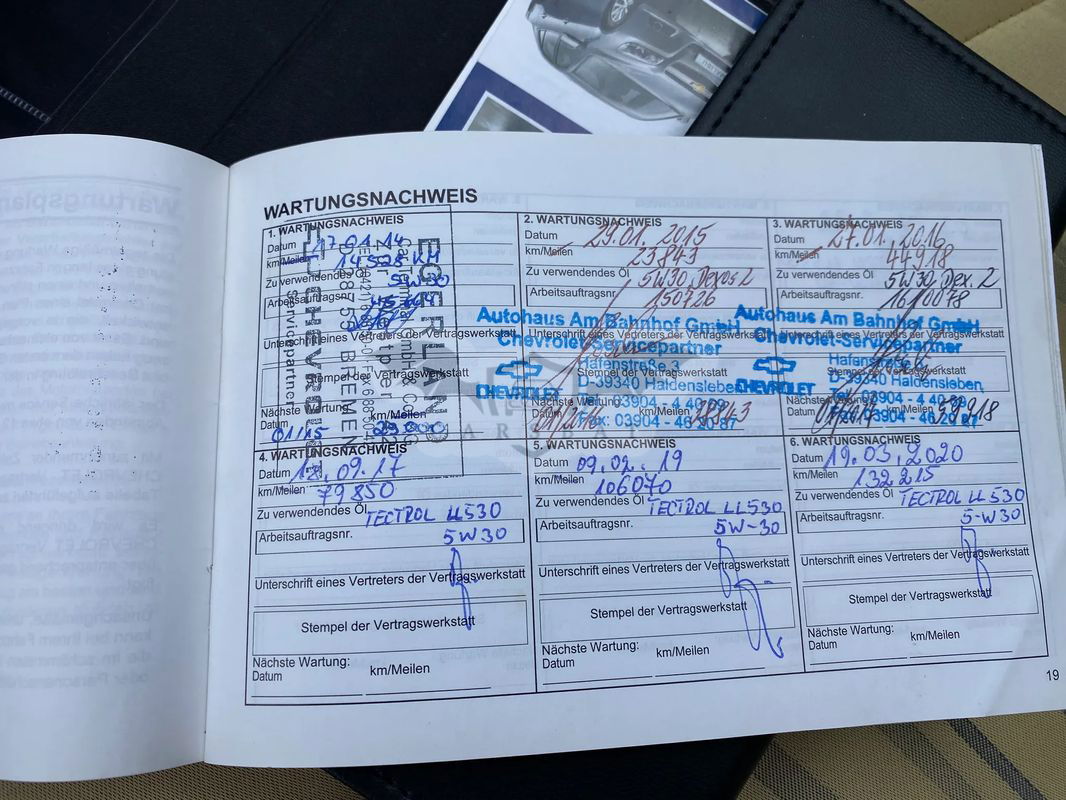 WARTUNGSNACHWEIS
1. WARTUNGSNACHWEIS
Datum 17.01.14
km/Meilen 14528 KM
Zu verwendendes Öl 5W30
Arbeitsauftragsnr.
Unterschrift eines Vertreters der Vertragswerkstatt
Stempel der Vertragswerkstatt
Nächste Wartung:
Datum 01/15 km/Meilen 29.000
EGGERLAND
CHEVROLET
Servicepartner
BREMEN
2. WARTUNGSNACHWEIS
Datum 29.01.2015
km/Meilen 23843
Zu verwendendes Öl 5W30 Dexos 2
Arbeitsauftragsnr. 150726
Unterschrift eines Vertreters der Vertragswerkstatt
Autohaus Am Bahnhof GmbH
Chevrolet-Servicepartner
Hafenstraße 3
Stempel der Vertragswerkstatt
D-39340 Haldensleben
CHEVROLET
Nächste Wartung:
03904 - 4 40 09
Datum km/Meilen 38843
Fax: 03904 - 46 20 87
3. WARTUNGSNACHWEIS
Datum 27.01.2016
km/Meilen 44918
Zu verwendendes Öl 5W30 Dex. 2
Arbeitsauftragsnr. 1610078
Autohaus Am Bahnhof GmbH
Unterschrift eines Vertreters der Vertragswerkstatt
Chevrolet-Servicepartner
Hafenstraße 3
Stempel der Vertragswerkstatt
D-39340 Haldensleben
CHEVROLET
Nächste Wartung:
03904 - 4 40 09
Datum km/Meilen 59918
03904 - 46 20 87
4. WARTUNGSNACHWEIS
Datum 12.09.17
km/Meilen 79850
Zu verwendendes Öl TECTROL LL530
Arbeitsauftragsnr. 5W30
Unterschrift eines Vertreters der Vertragswerkstatt
Stempel der Vertragswerkstatt
Nächste Wartung:
Datum km/Meilen
5. WARTUNGSNACHWEIS
Datum 09.02.19
km/Meilen 106070
Zu verwendendes Öl TECTROL LL530
Arbeitsauftragsnr. 5W-30
Unterschrift eines Vertreters der Vertragswerkstatt
Stempel der Vertragswerkstatt
Nächste Wartung:
Datum km/Meilen
6. WARTUNGSNACHWEIS
Datum 19.03.2020
km/Meilen 132215
Zu verwendendes Öl TECTROL LL530
Arbeitsauftragsnr. 5-W30
Unterschrift eines Vertreters der Vertragswerkstatt
Stempel der Vertragswerkstatt
Nächste Wartung:
Datum km/Meilen
19